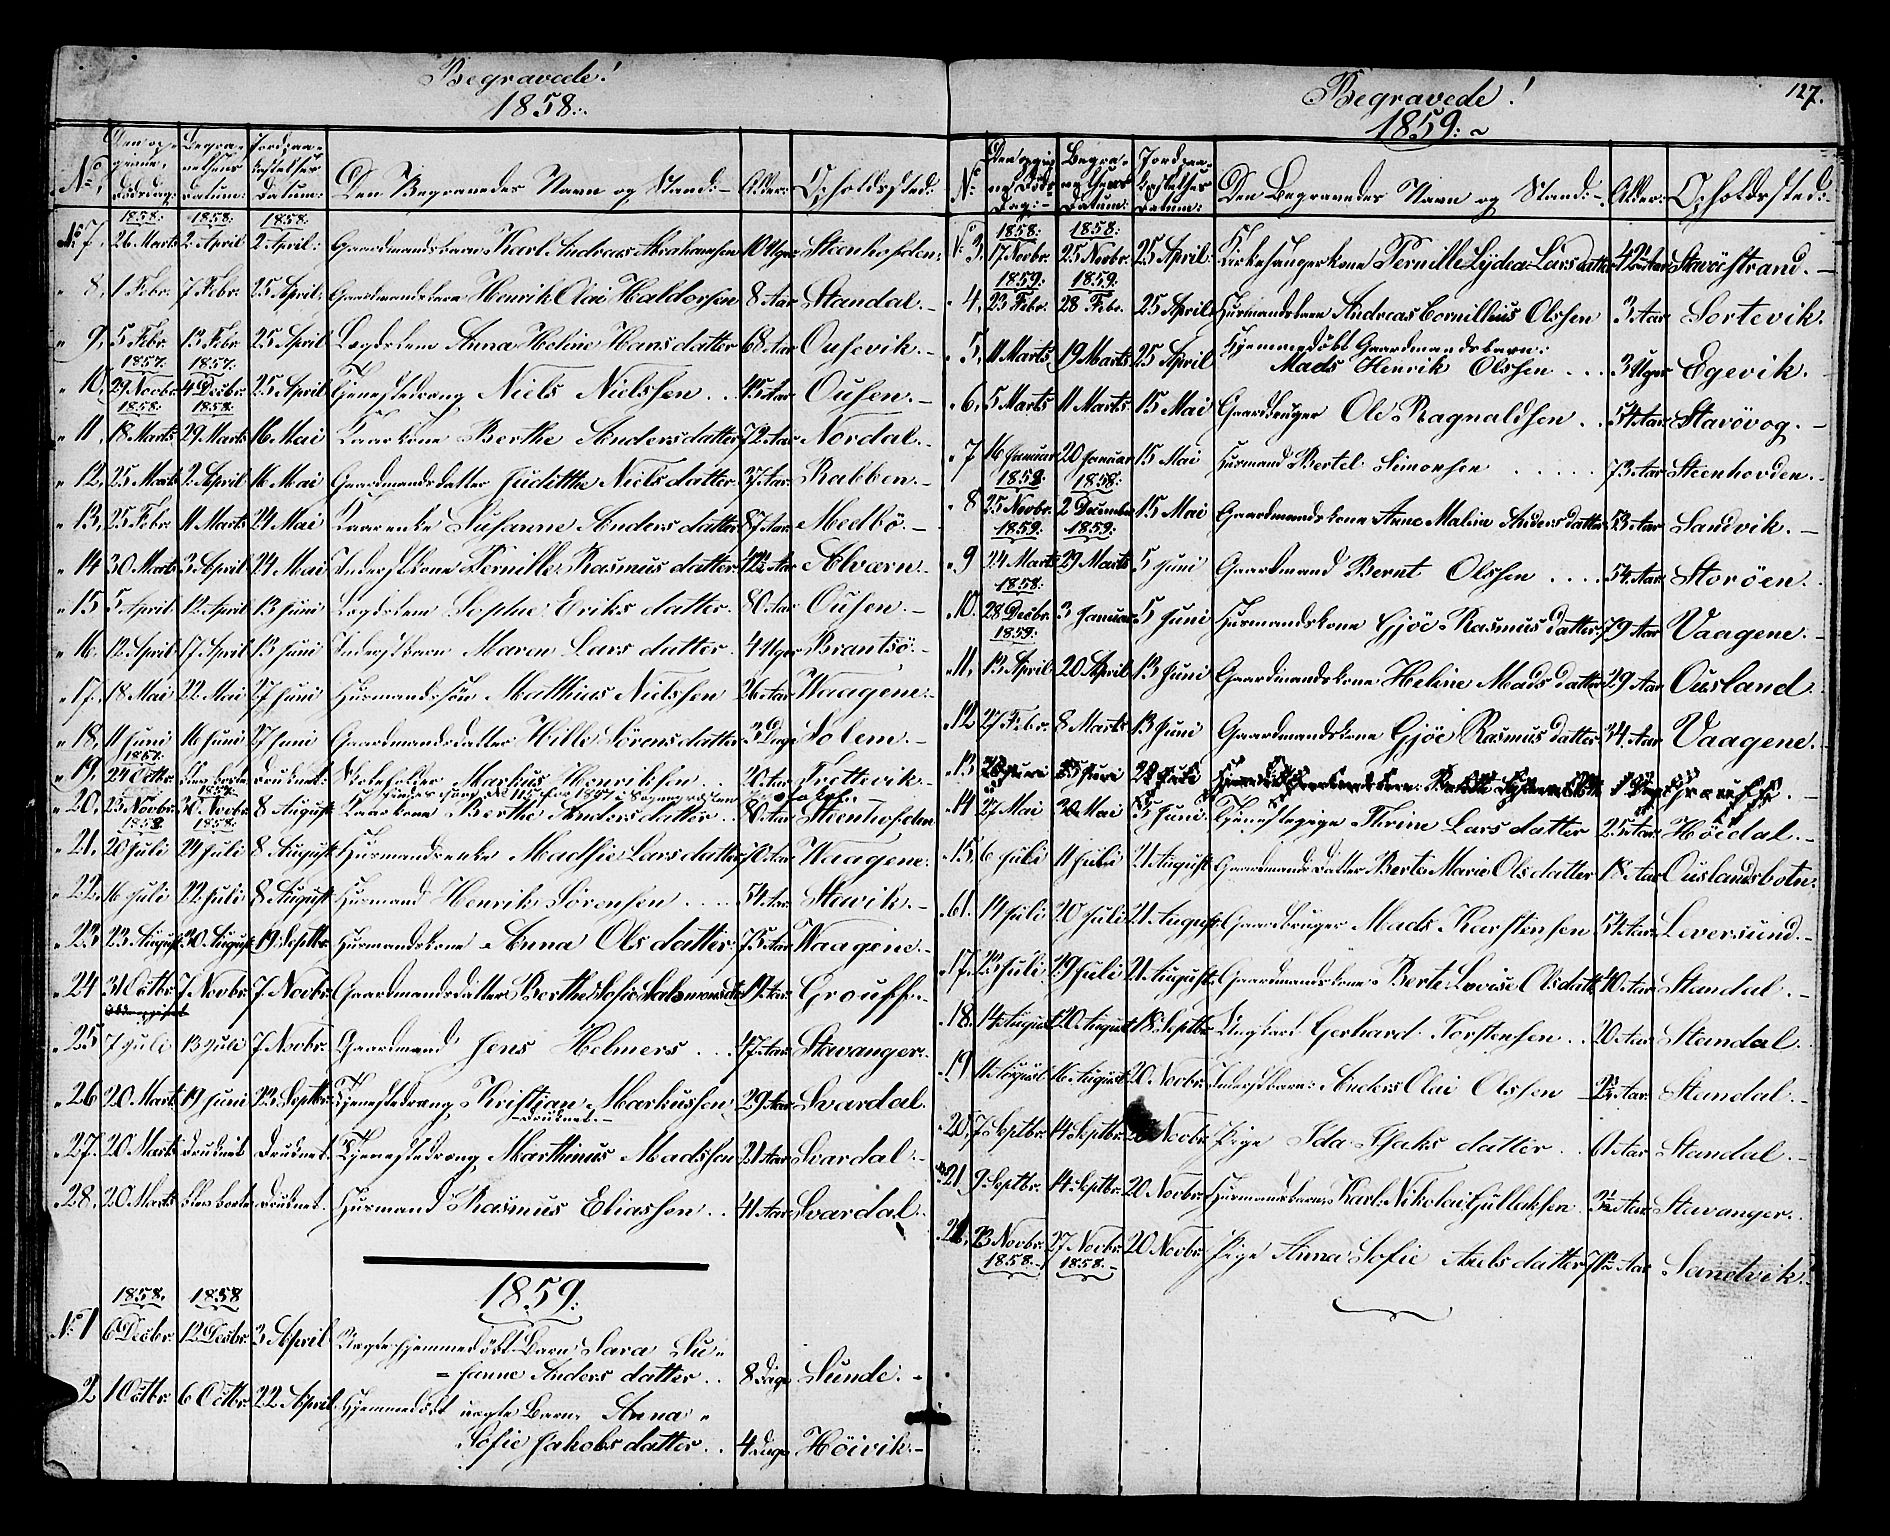 Begravede!
1858:
No. Den opgivne Dödsdag: Begravelsens Datum: Jordpaakastelses Datum: Den Begravedes Navn og Stand:- Alder: Opholdssted:
1858: 1858: 1858:
No 7, 26 Marts 2 April 2 April: Gaardmandsbarn Karl Andreas Abrahamsen 10 Uger Steenhofden:
" 8, 1 Febr. 7 Febr. 25 April: Gaardmandsbarn Henrik Olai Haldorsen 8 Aar Standal.-
" 9, 5 Febr. 13 Febr 25 April Lægdslem Anna Heline Hansdatter 68 Aar Ousevik.-
1857: 1857:
" 10, 29 Novbr. 4 Decbr. 25 April Tjenestedreng Niels Nielssen .. 45 Aar Ousen.-
1858: 1858:
" 11, 18 Marts 29 Marts 16 Mai Kaarkone Berthe Andersdatter 72 Aar Nordal.-
" 12, 25 Marts 2 April 16 Mai Gaardmandsdatter Judithe Nielsdatter 37 Aar Rabben.-
" 13, 25 Febr 11 Marts 24 Mai Kaarenke Susanne Andersdatter 87 Aar Medbö.-
" 14 30 Marts 3 April 24 Mai Inderstkone Pernille Rasmusdatter Aar Alværn.-
" 15 5 April 12 April 13 Juni Lægdslem Sophie Eriksdatter. 80 Aar Ousen.-
" 16. 12 April 17 April 13 Juni Inderstbarn Maren Larsdatter. 4 Uger Brantsö.-
" 17. 18 Mai 22 Mai 27 Juni Husmandssön Matthias Nielssen 26 Aar Waagene.-
" 18, 11 Juni 16 Juni 27 Juni Gaardmandsdatter Hille Sörensdatter 3 Dage Solem.-
1857:
" 19, 24 Octbr. blev borte Druknet: Markus Henriksen 20 Aar Trettevik.-
1857
" 20, 23 Novbr. 30 Novbr 8 August Kaarkone Berthe Andersdatter .. 80 Aar Steenhofden
1858 1858:
" 21. 20 Juli 24 Juli 8 August Husmandsenke Madssie Larsdatter 70 Aar Waagene:
" 22. 16 Juli 22 Juli 8 August Husmand Henrik Sörensen .... 54 Aar. Stavik.-
" 23 23 August 30 August 19 Septbr. Husmandskone Anna Olsdatter. 75 Aar Waagene.-
" 24 31 Octbr. 7 Novbr. 7 Novbr. Gaardmandsdatter Berthe Sofie Salomonsdtr 19 Aar Grouff.-
" 25 7 Juli 13 Juli 7 Novbr. Gaardmand Jens Helmers ... 47 Aar Stavanger.
" 26 20 Marts 19 Juni 23 Septbr. Tjenestedreng Kristian Markussen 29 Aar Svardal.
- druknet.-
" 27. 20 Marts Druknet Druknet. Tjenestedreng Marthinus Madssen 21 Aar Svardal.-
" 28. 20 Marts blev borte Druknet. Husmand Rasmus Eliassen .. 41 Aar Svardal.
1859:
1858. 1858
No 1 6 Decbr. 12 Decbr. 3 April Uægte hjemmedöbt Barn Sara Su=
= sanne Andersdatter .. 8 Dage Sunde.-
" 2 1 Octbr. 6 Octbr. 22 April. Hjemmedöbt uægte Barn Anna
Sofie Jakobsdatter .. 4 Dage Höivik.-
127.
Begravede!
1859:~
No: Den opgivne Döds Dag:- Begravelsens Datum: Jordpaakastelses Datum: Den Begravedes Navn og Stand:- Alder: Opholdssted:
1858: 1858:
No 3, 17 Novbr. 25 Novbr. 25 April Kirkesangerkone Pernille Lydia Larsdatter Aar Stavöstrand.-
1859: 1859:
" 4, 23 Febr. 28 Febr. 25 April Husmandsbarn Andreas Cornillius Olssen 3 Aar Sortevik.
" 5, 11 Marts 19 Marts 25 April Hjemmedöbt Gaardmandsbarn:
Mads Henrik Olssen ... 3 Uger Egevik.-
" 6, 5 Marts 11 Marts 15 Mai Gaardbruger Ole Ragnaldsen .. 54 Aar. Stavövog.-
" 7 16 Januar 20 Januar 15 Mai Husmand Bertel Simonsen ..... 73 Aar Steenhovden.-
1858: 1858:
" 8 25 Novbr. 2 December 15 Mai Gaardmandskone Anne Malene Andersdatter 53 Aar Sandvik.-
1859: 1859:
" 9 24 Marts 29 Marts 5 Juni Gaardmand Bernt Olssen .... 54 Aar. Storöen.
1858:
" 10. 28 Decbr. 3 Januar 5 Juni Husmandskone Gjöe Rasmusdatter 79 Aar Vaagene.-
1859:
" 11, 13 April 20 April 13 Juni Gaardmandskone Heline Madsdatter 29 Aar Ousland.
" 12 27 Febr. 8 Marts 13 Juni Gaardmandskone Gjöe Rasmusdatter 34 Aar Vaagene.-
" 13
" 14 27 Mai 30 Mai 5 Juni Tjenestepige Thrine Larsdatter 25 Aar Höidal.-
" 15, 6 Juli 11 Juli 21 August Gaardmandsdatter Berte Marie Olsdatter 18 Aar Ouslandsbotn:
" 61. 14 Juli 20 Juli 21 August Gaardbruger Mads Karstensen 54 Aar Leversund.-
" 17. 23 Juli 29 Juli 21 August Gaardmandskone Berte Lovise Olsdatter 40 Aar Standal.-
" 18. 14 August 20 August 18 Septbr. Ungkarl Gerhard Torstensen .. 20 Aar Standal.
" 19 11 August 16 August 20 Novbr. Inderstbarn: Anders Olai Olssen Aar. Standal.-
" 20, 7 Septbr. 14 Septbr. 20 Novbr. Pige Ida Isaksdatter .. Aar Standal.-
" 21. 9 Septbr. 14 Septbr. 20 Novbr. Husmandsbarn Karl Nikolai Gulleksen Aar Stavanger.
23 Novbr. 27 Novbr. 20 Novbr. Pige Anna Sofie Axelsdatter Aar Sandvik.
1858.- 1858.-